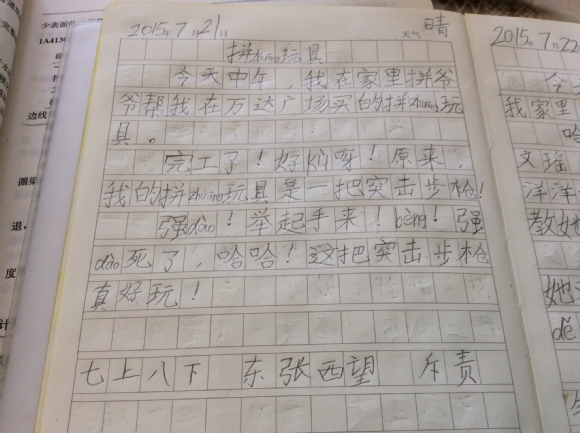 少表面
1A413
边线
圈梁
退,
度
计
2015年7月21日 天气 晴
拼zhuāng玩具
今天中午,我在家里拼爷
爷帮我在万达广场买的拼zhuāng玩
具。
完工了!好kù呀!原来,
我的拼zhuāng玩具是一把突击步枪!
强dào!举起手来!bèng!强
dào死了,哈哈!这把突击步枪
真好玩!
七上八下 东张西望 斥责
2015.7.22
今
我家里
哈
文瑶
洋洋
教她
她
dě